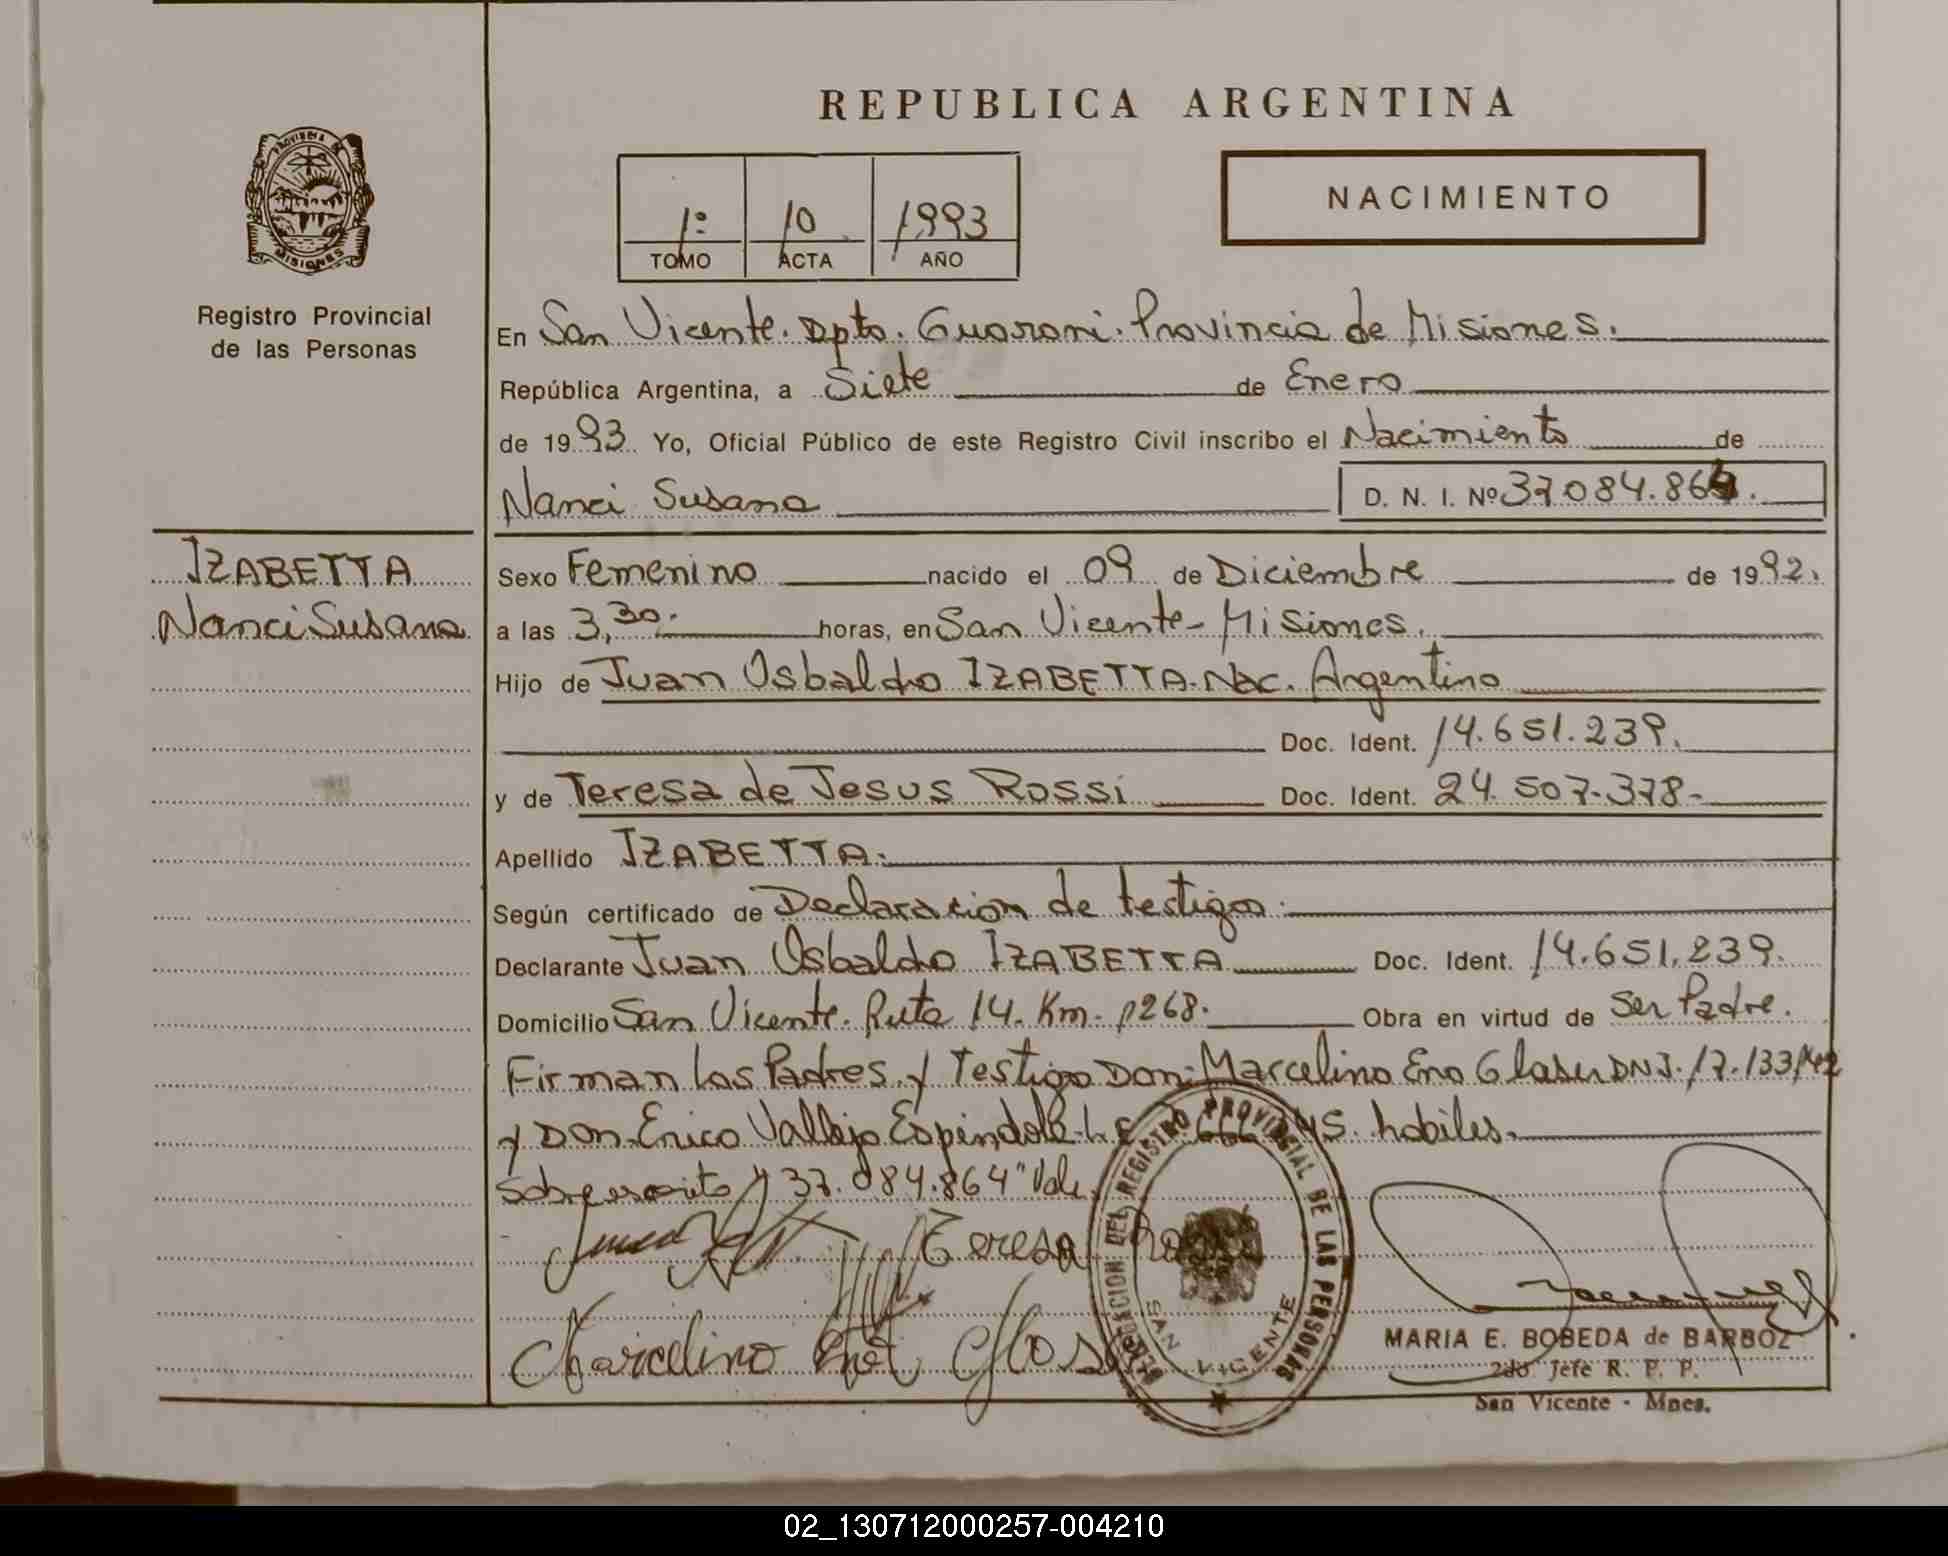 REPUBLICA ARGENTINA
PROVINCIA DE MISIONES
Registro Provincial
de las Personas
1º 10 1993
TOMO ACTA AÑO
NACIMIENTO
En San Vicente. Dpto. Guarani. Provincia de Misiones.
República Argentina, a Siete de Enero
de 1993 Yo, Oficial Público de este Registro Civil inscribo el Nacimiento de
Nanci Susana D. N. I. Nº 37.084.864.
IZABETTA
Nanci Susana
Sexo Femenino nacido el 09 de Diciembre de 1992.
a las 3,30. horas, en San Vicente - Misiones.
Hijo de Juan Osbaldo IZABETTA. Nac. Argentino
Doc. Ident. 14.651.239.
y de Teresa de Jesus Rossi Doc. Ident. 24.507.378-
Apellido IZABETTA.
Según certificado de Declaracion de testigos.
Declarante Juan Osbaldo IZABETTA Doc. Ident. 14.651.239.
Domicilio San Vicente. Ruta 14. Km. 1268. Obra en virtud de Ser Padre.
Firman Los Padres y Testigo Don: Marcelino Eno Glaser DNI. 17.133.
y Don. Enrico Vallejo Espindola habiles.
Sobreescrito "37.084.864" Vale.
Teresa Rossi
Marcelino
DELEGACION DEL REGISTRO PROVINCIAL DE LAS PERSONAS
SAN VICENTE
MARIA E. BOBEDA de BARBOZ
2do Jefe R. P. P.
San Vicente - Mnes.
02_130712000257-004210